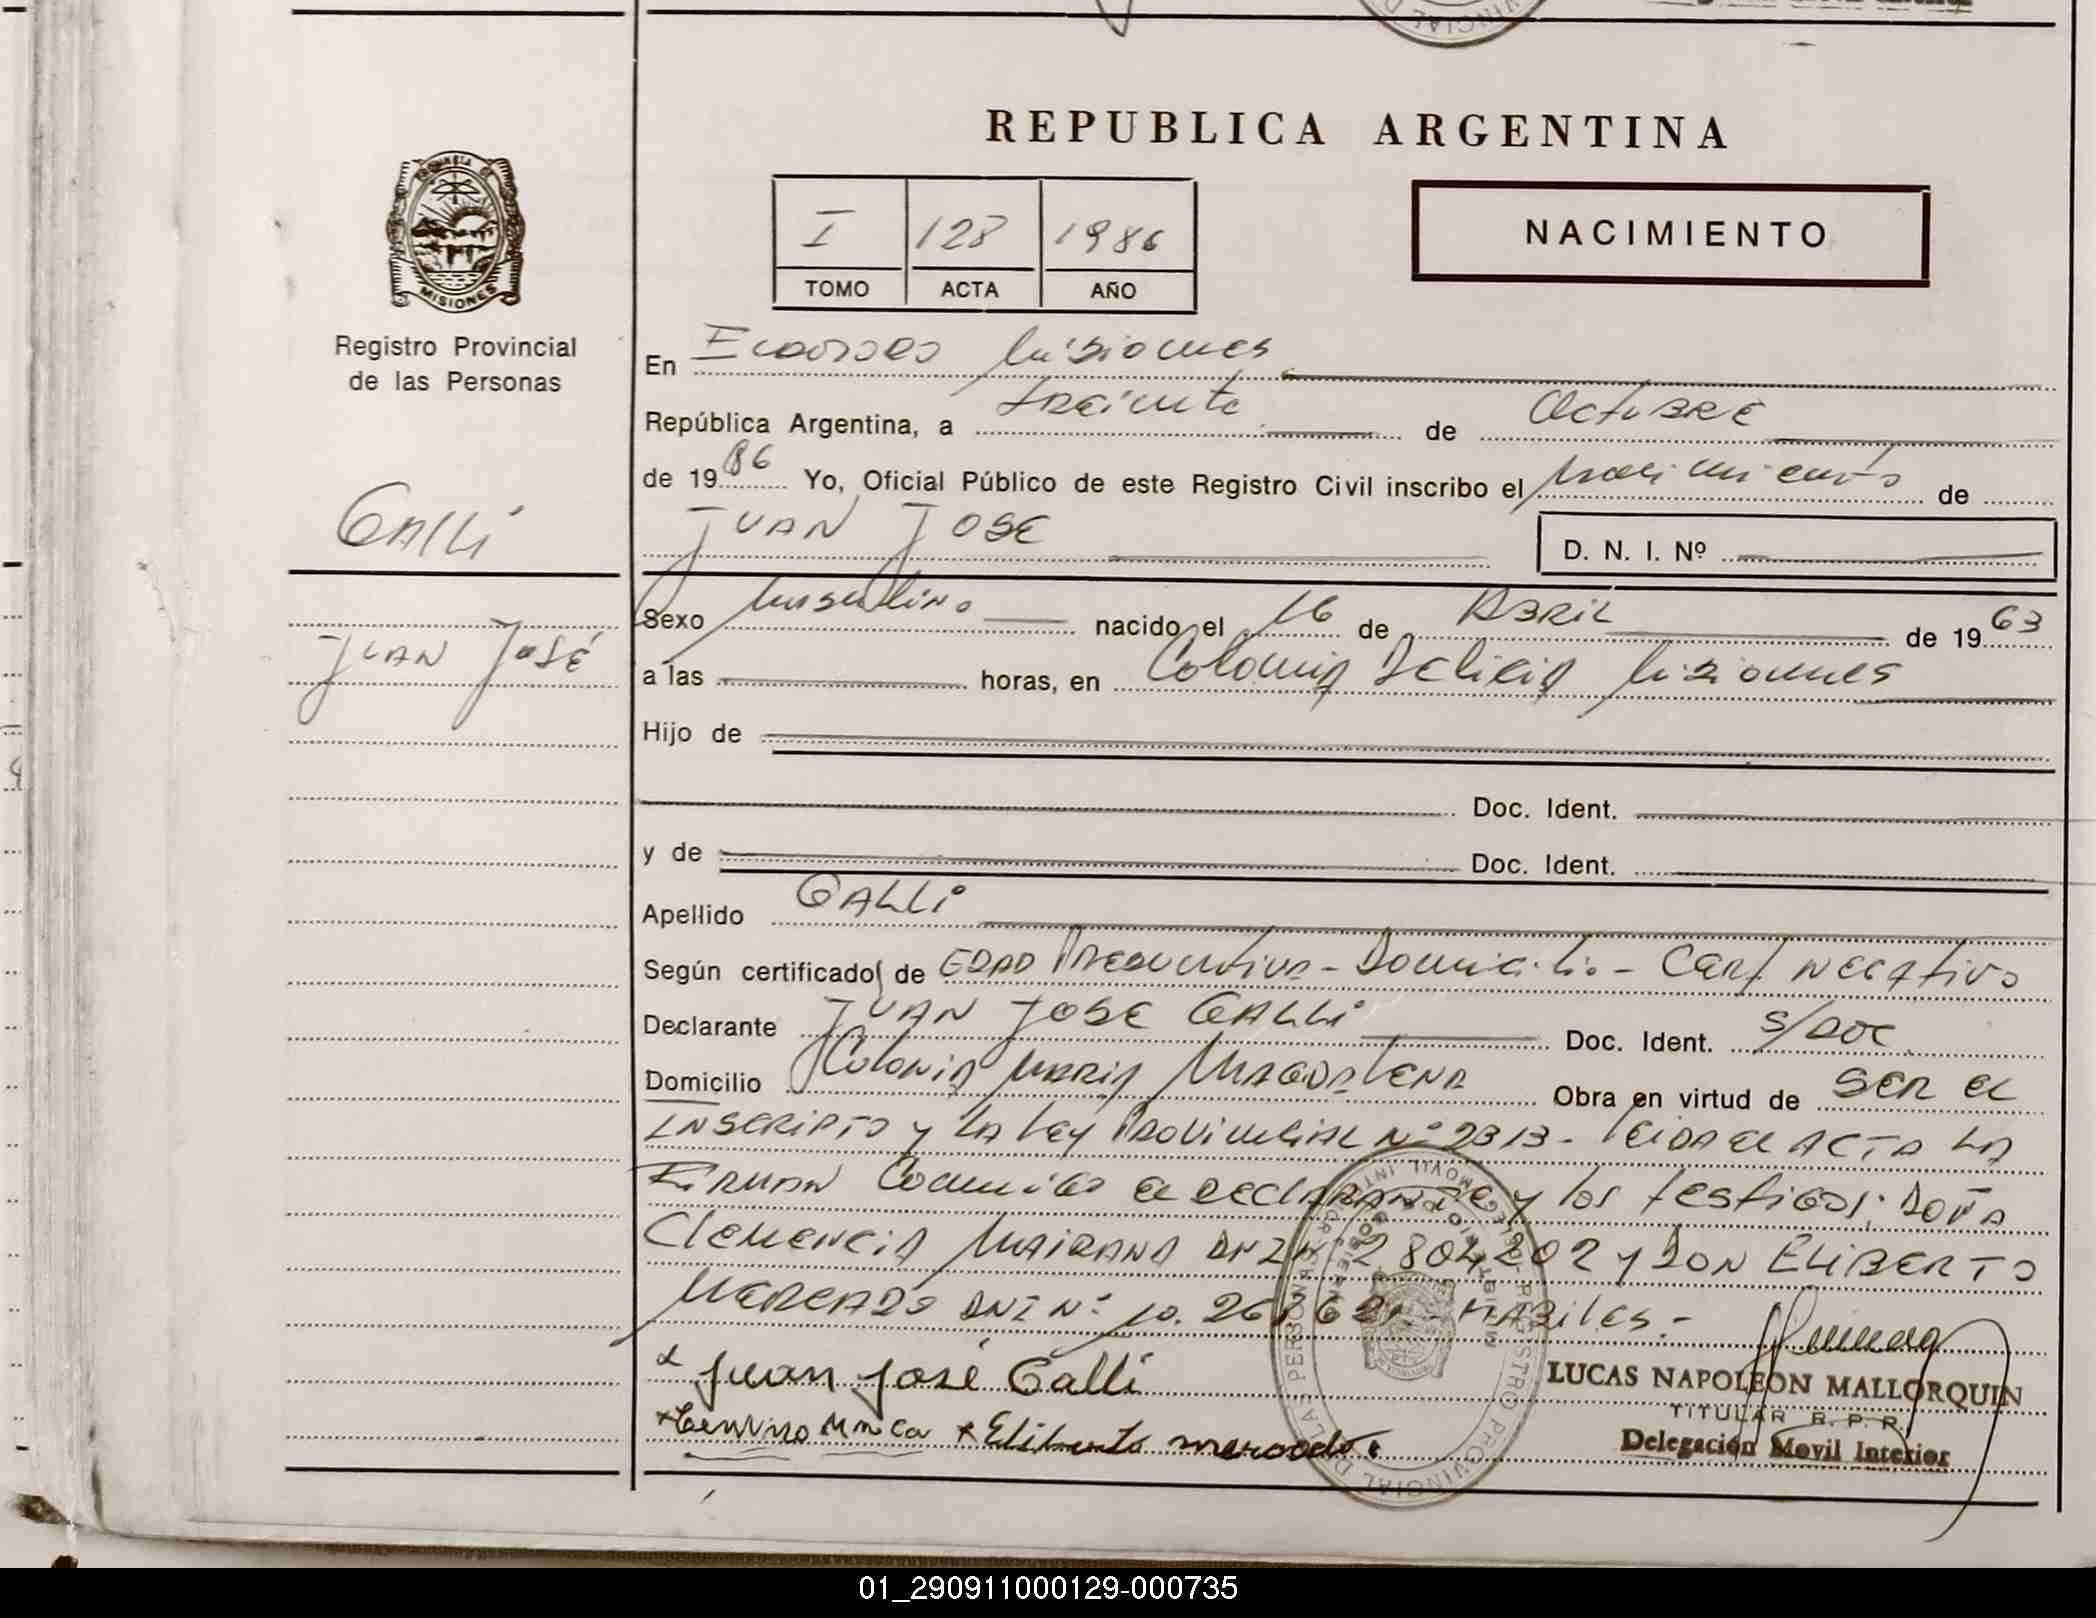 REPUBLICA ARGENTINA
NACIMIENTO
I 128 1986
TOMO ACTA AÑO
MISIONES
Registro Provincial
de las Personas
Galli
Juan José
En Eldorado Misiones
República Argentina, a treinta de Octubre
de 1986 Yo, Oficial Público de este Registro Civil inscribo el nacimiento de
Juan Jose
D. N. I. Nº
Sexo Masculino nacido el 16 de Abril de 1963
a las horas, en Colonia Delicia Misiones
Hijo de
Doc. Ident.
y de Doc. Ident.
Apellido Galli
Según certificado de Edad Presuntiva - Domicilio - Cert negativo
Declarante Juan Jose Galli Doc. Ident. S/Doc
Domicilio Colonia Maria Magdalena Obra en virtud de ser el
inscripto y la Ley Provincial Nº 2313 - leida el acta la
Firman Conmigo el declarante y los testigos: Doña
Clemencia DNI Nº 2804202 y Don Eliberto
Mercado DNI Nº 10. Habiles.-
Juan José Galli
Eliberto mercado
LUCAS NAPOLEON MALLORQUIN
TITULAR R. P. R.
Delegación Movil Interior
01_290911000129-000735